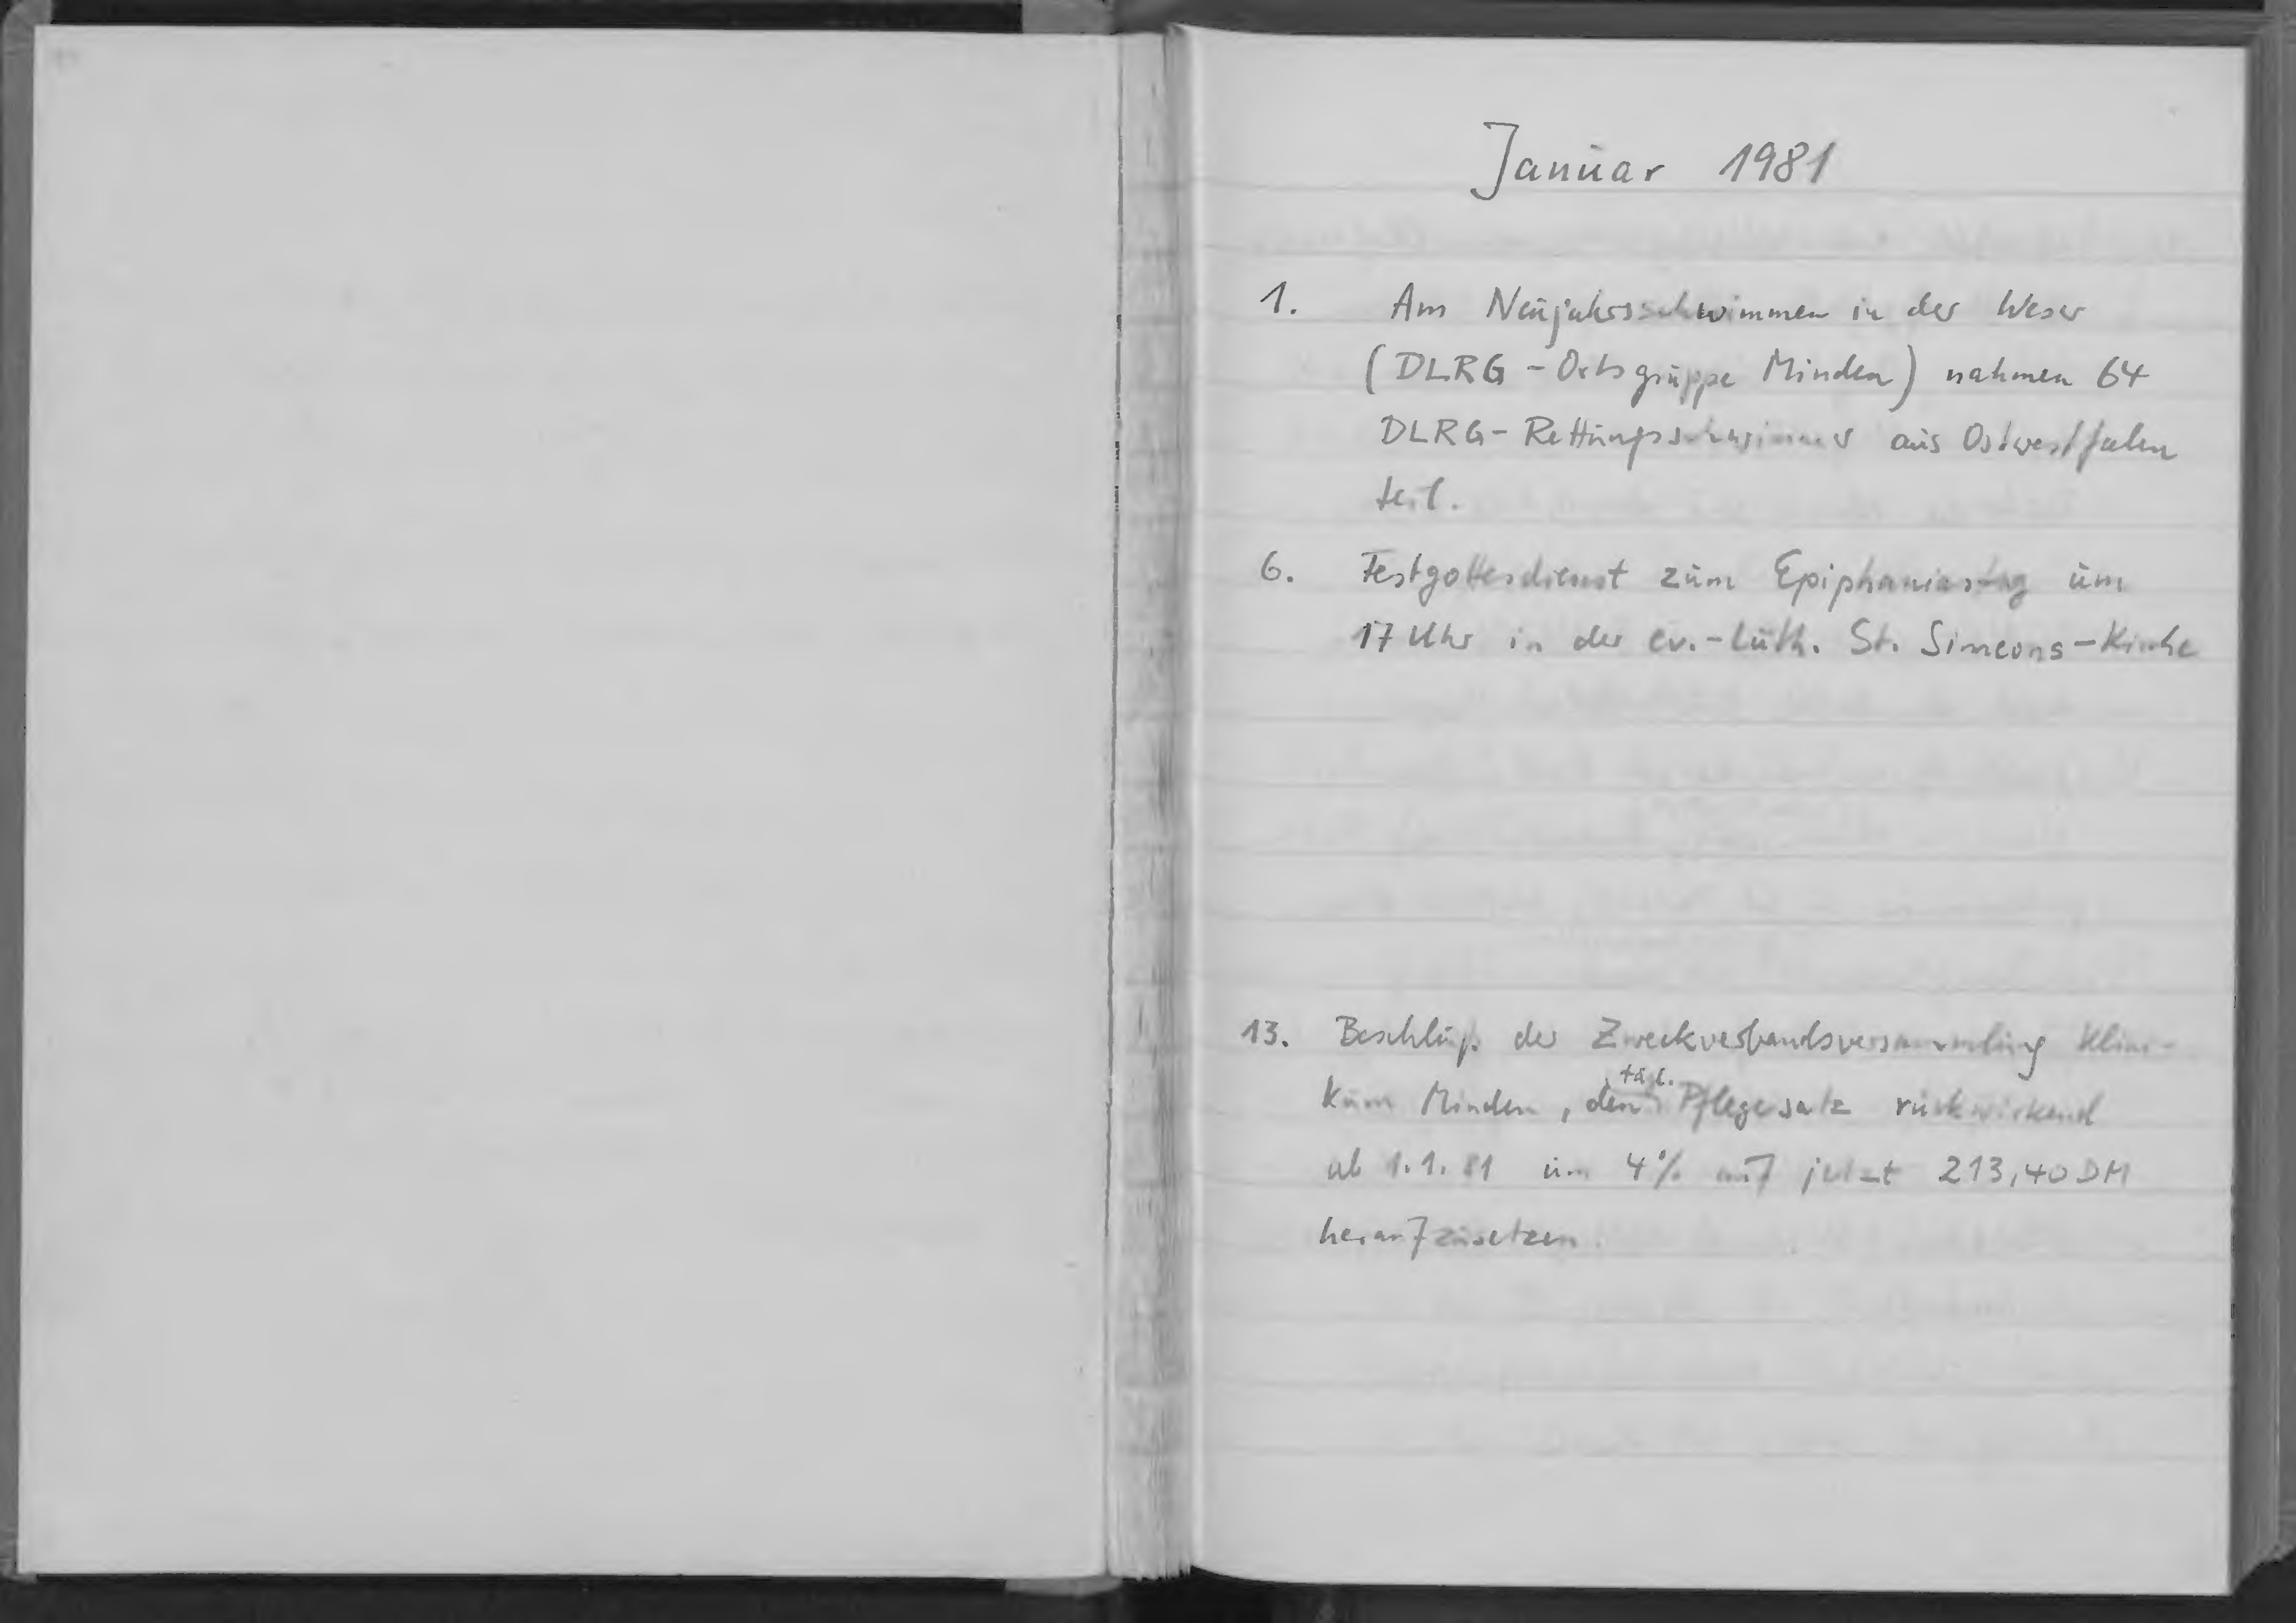 Januar 1981
1. Am Neujahrsschwimmen in der Weser
(DLRG-Ortsgruppe Minden) nahmen 64
DLRG-Rettungsschwimmer aus Ostwestfalen
teil.
6. Festgottesdienst zum Epiphaniastag um
17 Uhr in der ev.-luth. St. Simeons-Kirche
13. Beschluß der Zweckverbandsversammlung Klini-
kum Minden, den tägl. Pflegesatz rückwirkend
ab 1.1.81 um 4% auf jetzt 213,40 DM
heraufzusetzen.